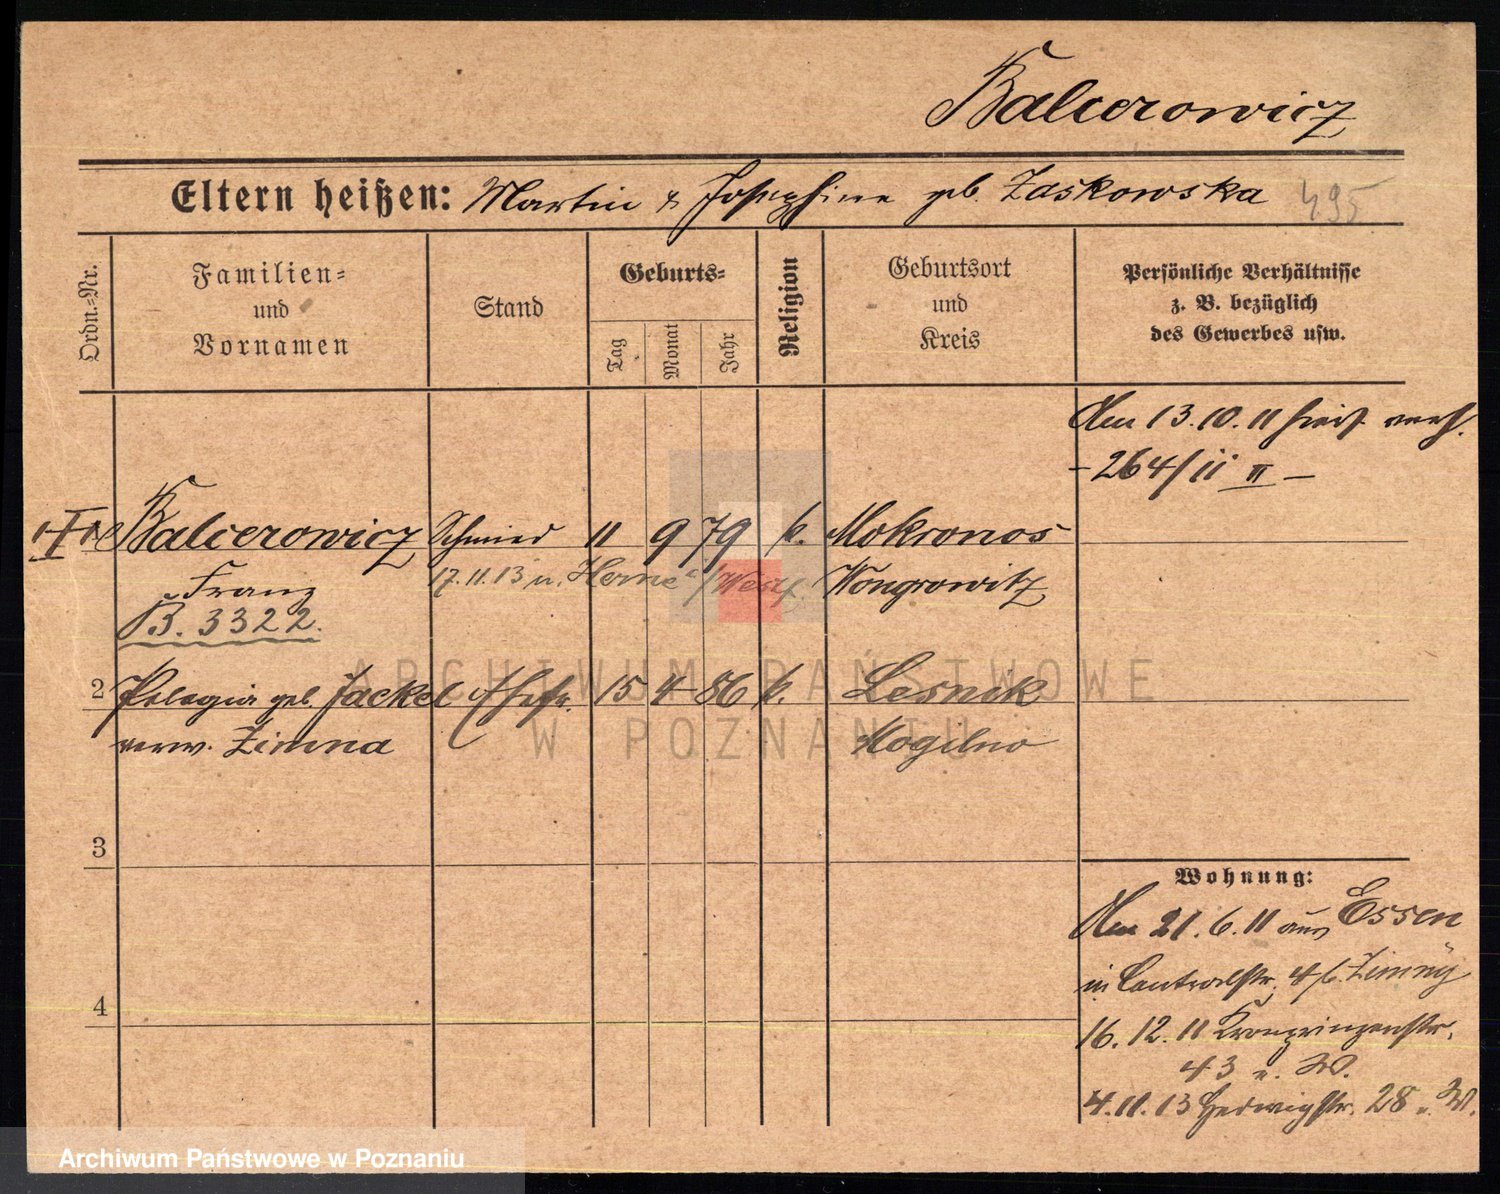 Balcerowicz
Eltern heißen: Martin & Josephine geb. Zaskowska 495
Ordn.-Nr.
Familien-
und
Vornamen
Stand
Geburts-
Tag
Monat
Jahr
Religion
Geburtsort
und
Kreis
Persönliche Verhältnisse
z. B. bezüglich
des Gewerbes usw.
Am 13.10.11 hier verh.
- 264/11 II -
1 Balcerowicz Schmied 11 9 79 k. Mokronos
Franz 17.11.13 n. Herne i/Westf. Wongrowitz
B. 3322.
2 Pelagia geb. Jackel Ehefr. 15 4 86 k. Lesnik
verw. Zimna Mogilno
3
4
Wohnung:
Am 21.6.11 aus Essen
in Centralstr. 4 b. Zimny
16.12.11 Kronprinzenstr.
43 e. W.
4.11.13 Hedwigstr. 28 e. W.
ARCHIWUM PAŃSTWOWE
W POZNANIU
Archiwum Państwowe w Poznaniu